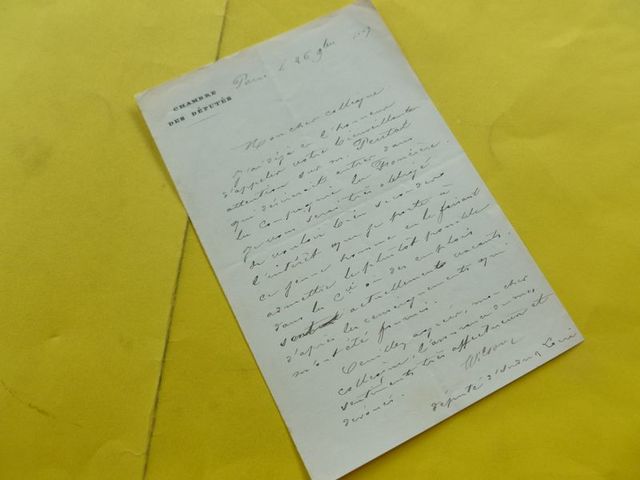 Paris le 26 9bre
CHAMBRE
DES DÉPUTÉS
Mon cher collègue
J'ai déjà eu l'honneur
d'appeler votre bienveillante
attention sur M.
qui désirerait entrer dans
la Compagnie la Foncière.
Je vous serais très obligé
de vouloir bien seconder
l'intérêt que je porte à
ce jeune homme en le faisant
admettre le plus tôt possible
dans la Cie où des emplois
sont actuellement vacants,
d'après les renseignements qui
m'ont été fournis.
Veuillez agréer, mon cher
collègue, l'assurance de mes
sentiments très affectueux et
dévoués.
Wilson
député d'Indre & Loire